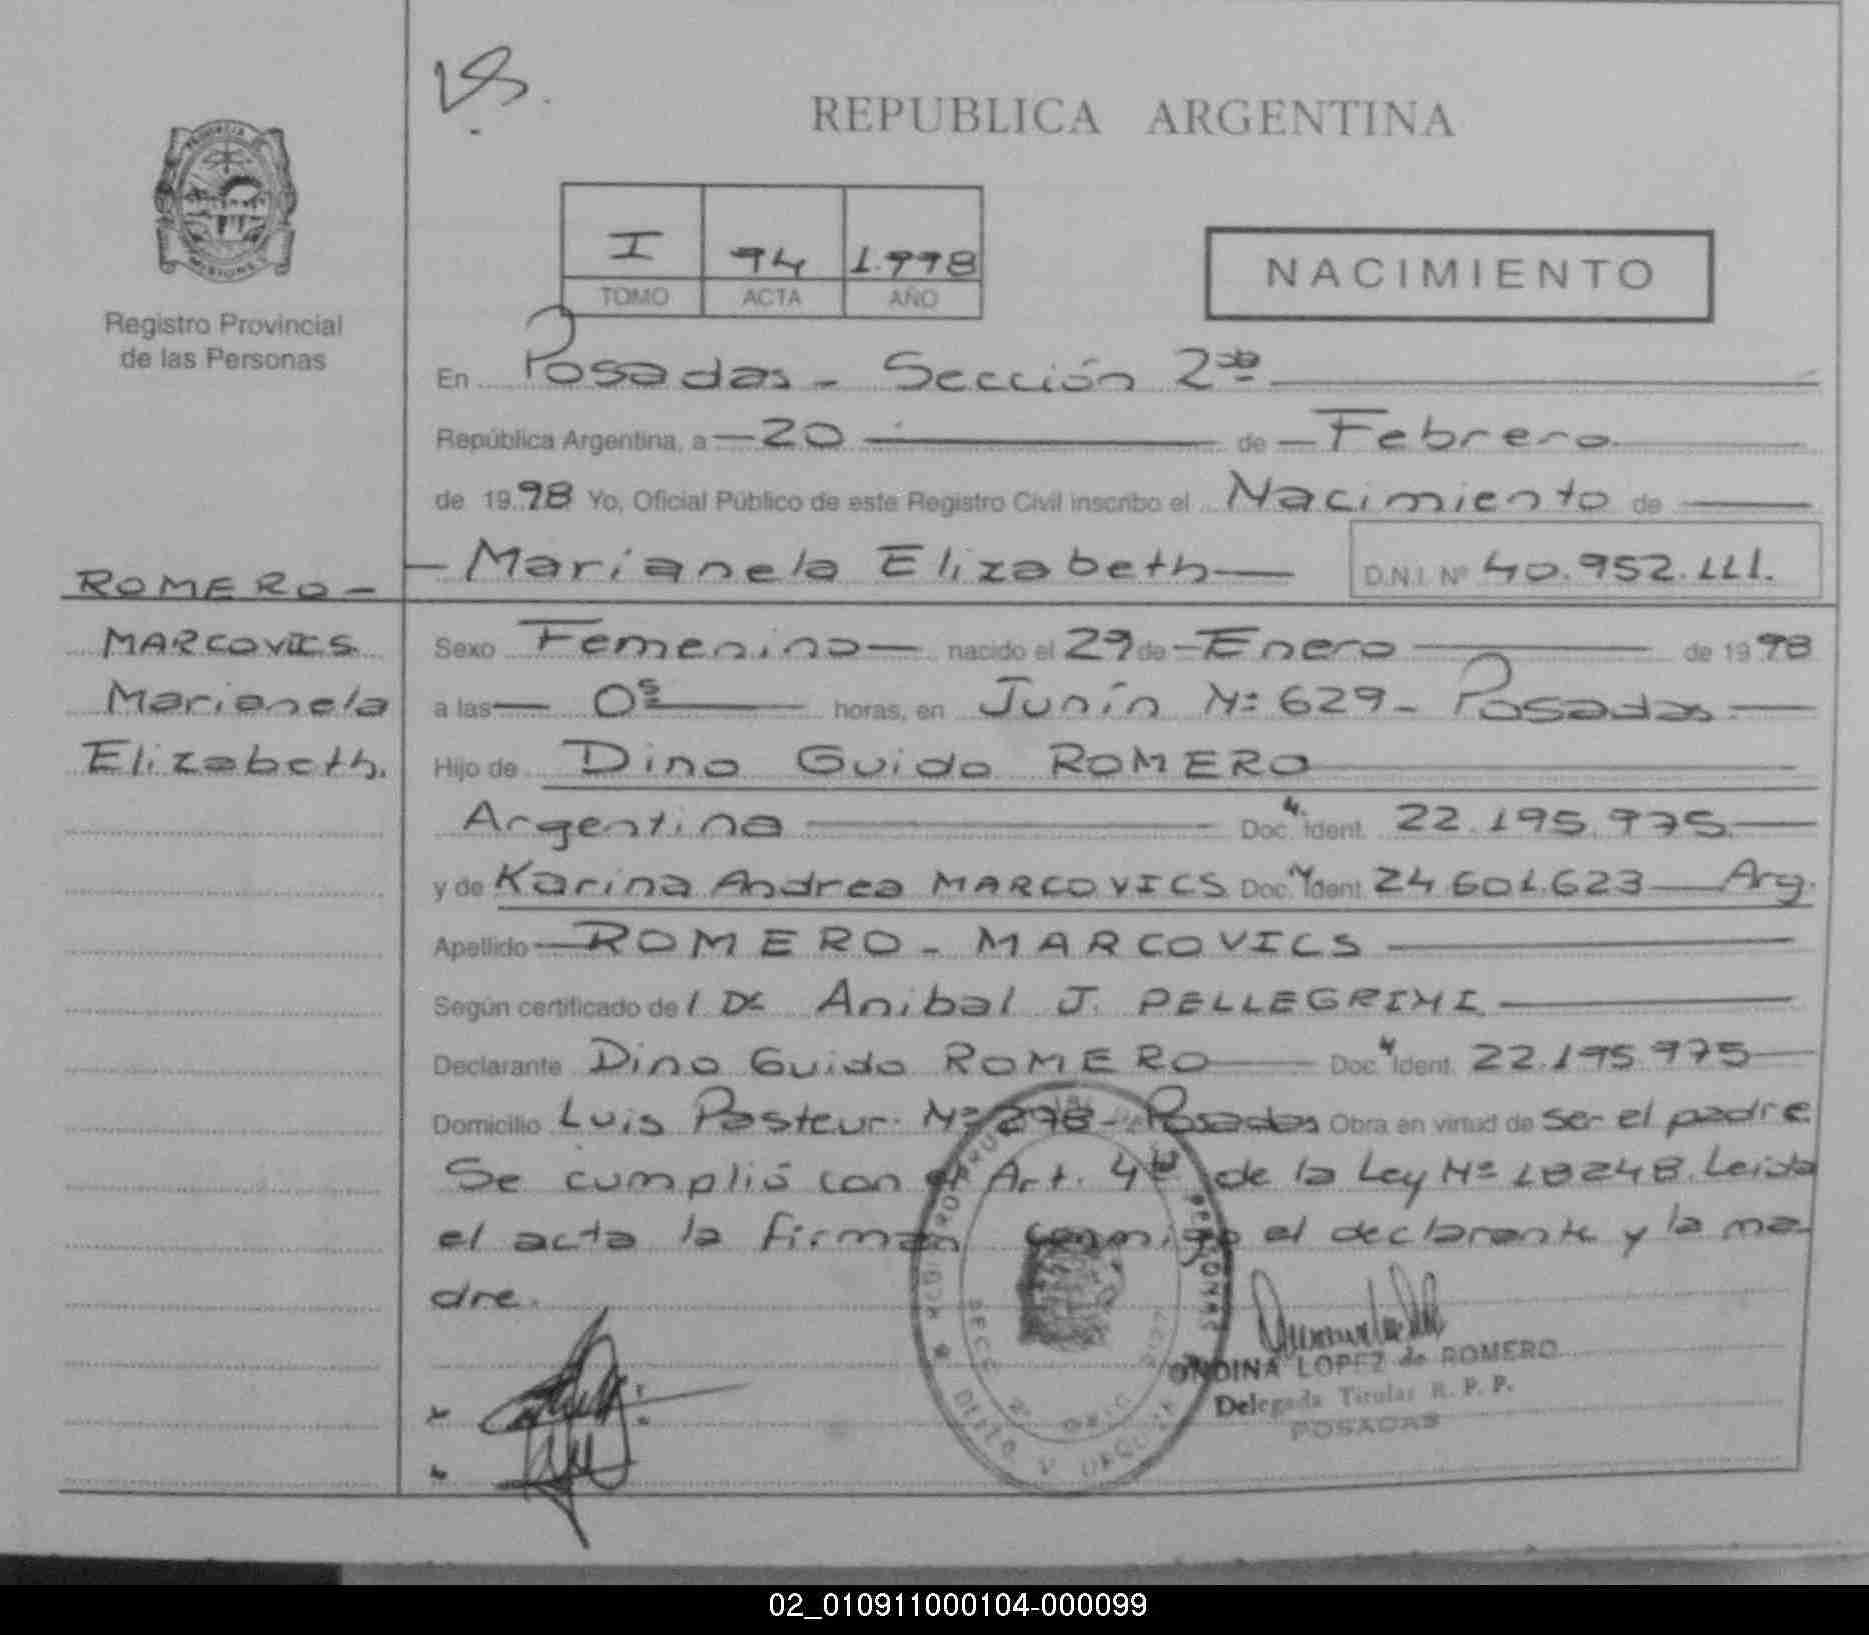 REPUBLICA ARGENTINA
PROVINCIA
MISIONES
Registro Provincial
de las Personas
I 94 1.998
TOMO ACTA AÑO
NACIMIENTO
En Posadas - Sección 2da
República Argentina, a 20 de Febrero
de 1998 Yo, Oficial Público de este Registro Civil inscribo el Nacimiento de
Marianela Elizabeth D.N.I. Nº 40.952.111.
ROMERO -
MARCOVICS
Marianela
Elizabeth.
Sexo Femenino nacido el 29 de Enero de 1998
a las 0s horas, en Junín Nº 629 - Posadas
Hijo de Dino Guido ROMERO
Argentina Doc. Ident. 22.195.975
y de Karina Andrea MARCOVICS Doc. Ident. 24.601.623 Arg.
Apellido ROMERO - MARCOVICS
Según certificado del Dr. Anibal J. PELLEGRINI
Declarante Dino Guido ROMERO Doc. Ident. 22.195.975
Domicilio Luis Pasteur Nº 298 - Posadas Obra en virtud de ser el padre
Se cumplió con el Art. 4to de la Ley Nº 18248. Leida
el acta la firman conmigo el declarante y la ma-
dre.
ONDINA LOPEZ de ROMERO
Delegada Titular R. P. P.
POSADAS
02_010911000104-000099